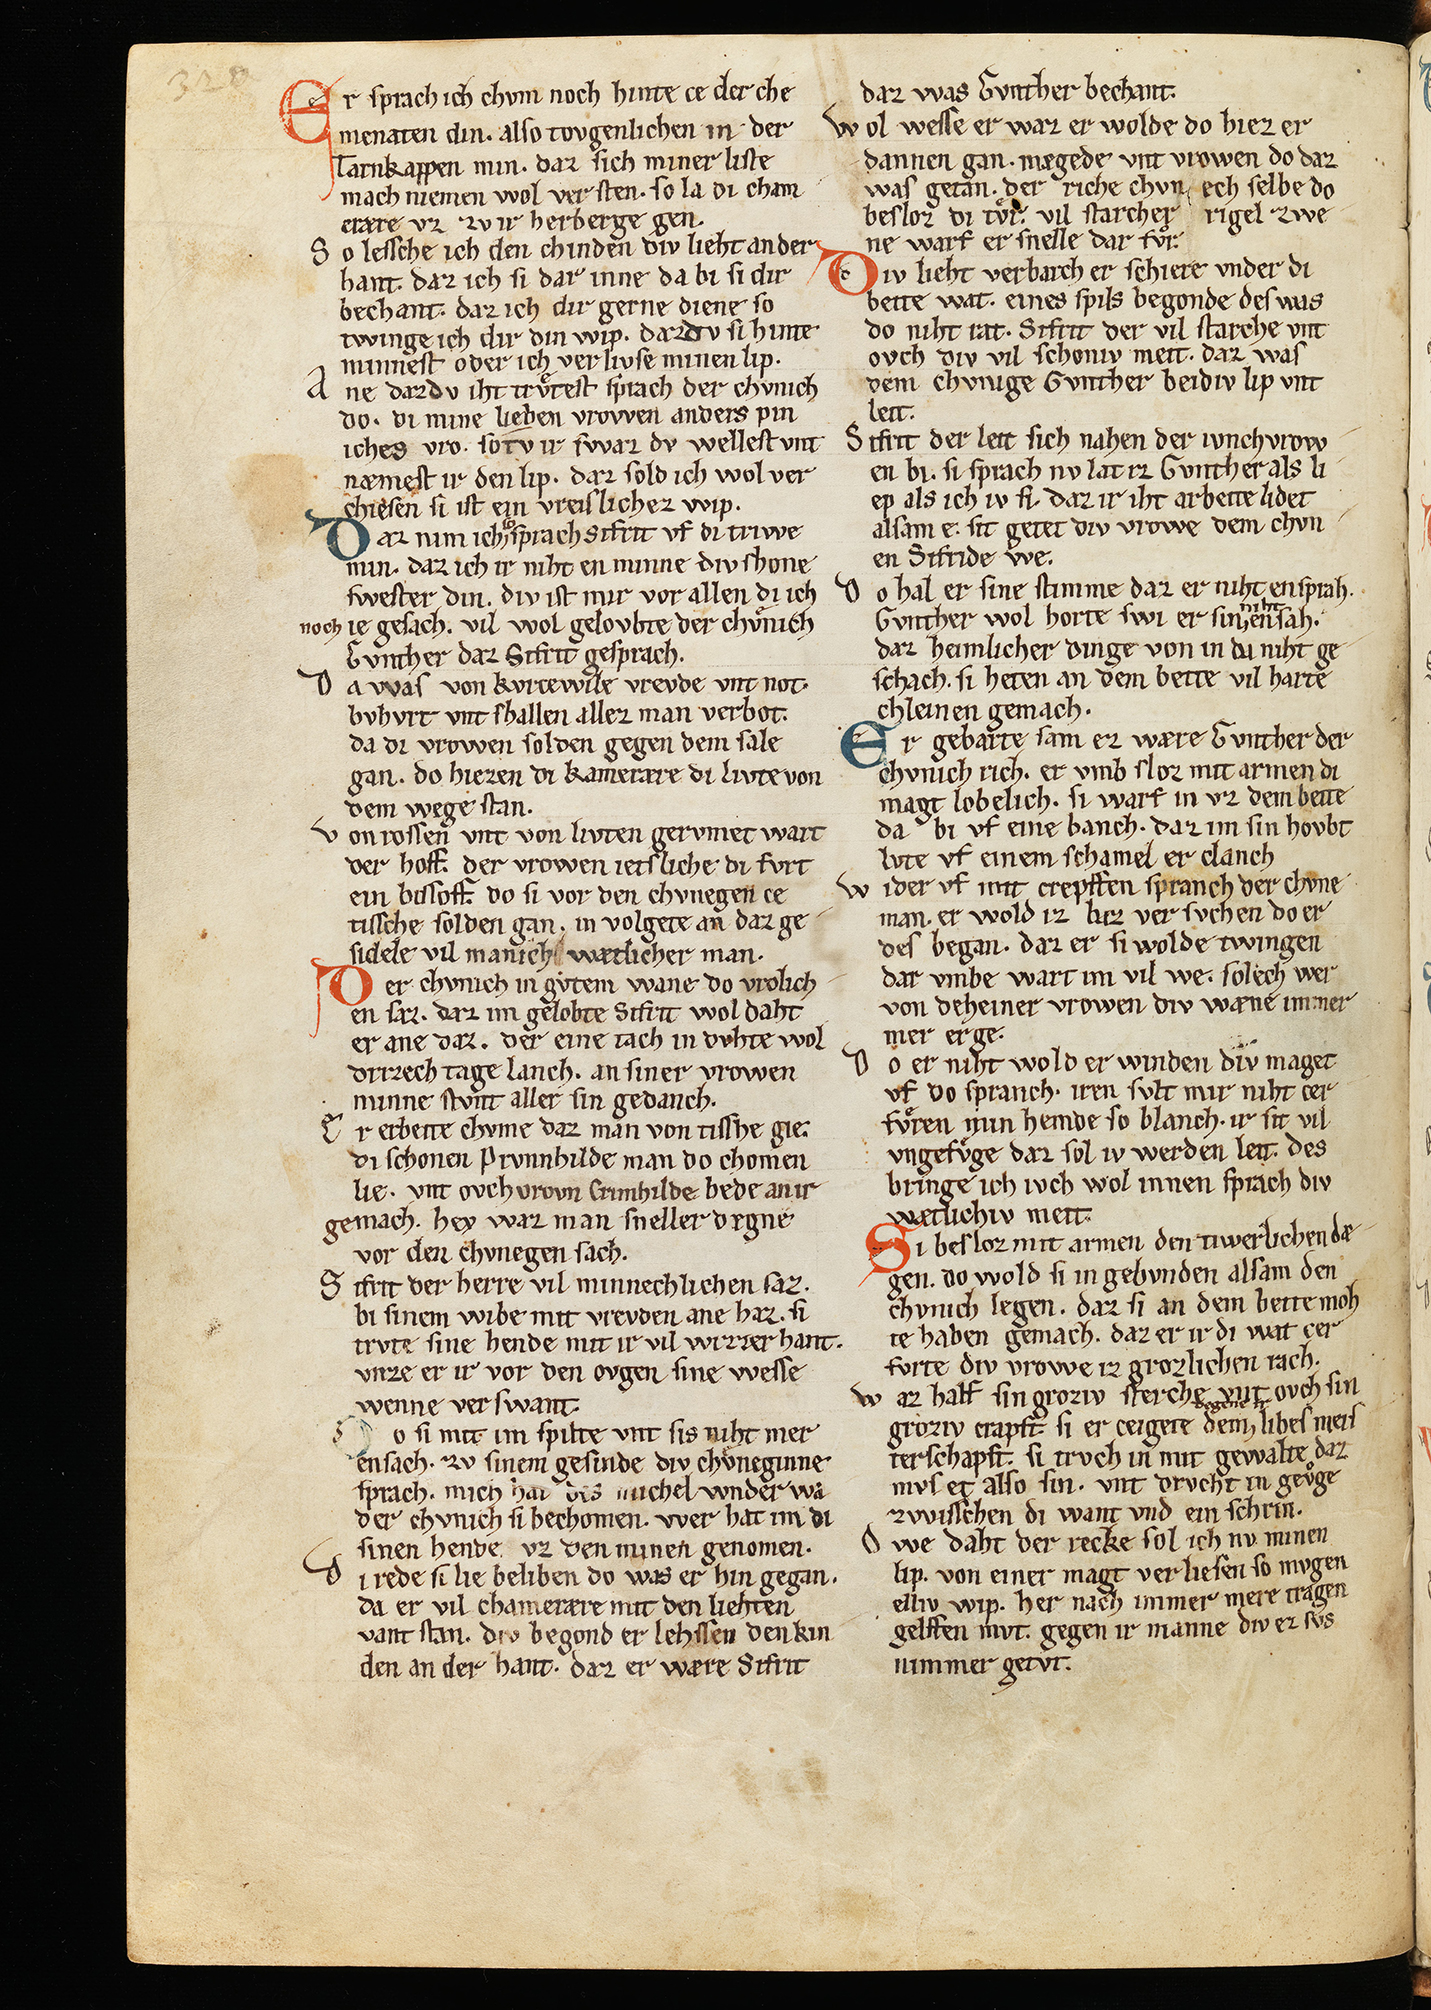 Er sprach ich chvm noch hinte ce der che
menaten din. also tovgenlichen in der
Tarnkappen min. daz sich miner liste
mach niemen wol ver sten. so la di cham
erære vz zv ir herberge gen.
So lessche ich den chinden div lieht an der
hant. daz ich si dar inne da bi si dir
bechant. daz ich dir gerne diene so
twinge ich dir din wip. daz dv si hinte
minnest oder ich ver livse minen lip.
Ane daz dv iht trvͦtest sprach der chvnich
do. di mine lieben vrowen anders pin
iches vro. so tv ir swaz dv wellest vnt
næmest ir den lip. daz sold ich wol ver
chiesen si ist ein vreislichez wip.
Daz nim ich so sprach Sifrit vf di triwe
min. daz ich ir niht en minne div shone
swester din. div ist mir vor allen di ich
noch ie gesach. vil wol gelovbte der chvͦnich
Gvnther daz Sifrit gesprach.
Da was von kvrtewile vrevde vnt not.
bvhvrt vnt shallen allez man verbot.
da di vrowen solden gegen dem sale
gan. do hiezen di kamerære di livte von
dem wege stan.
Von rossen vnt von livten gervmet wart
der hoff. der vrowen ietsliche di fvrt
ein bissoff. do si vor den chvnegen ce
tissche solden gan. in volgete an daz ge
sidele vil manich wætlicher man.
Der chvnich in gvtem wane do vrolich
en saz. daz im gelobte Sifrit wol daht
er ane daz. der eine tach in dvhte wol
drizech tage lanch. an siner vrowen
minne stvnt aller sin gedanch.
Er erbeite chvme daz man von tisshe gie.
di schonen Prvnnhilde man do chomen
lie. vnt ovch vrovn Crimhilde bede an ir
gemach. hey waz man sneller degne
vor den chvnegen sach.
Sifrit der herre vil minnechlichen saz.
bi sinem wibe mit vrevden ane haz. si
trvte sine hende mit ir vil wizzer hant.
vnze er ir vor den ovgen sine wesse
wenne ver swant.
Do si mit im spilte vnt sis niht mer
ensach. zv sinem gesinde div chvneginne
sprach. mich hat des michel wnder wa
der chvnich si bechomen. wer hat im di
sinen hende vz den minen genomen.
Di rede si lie beliben do was er hin gegan.
da er vil chamerære mit den liehten
vant stan. div begond er lehssen den kin
den an der hant. daz er wære Sifrit
daz was Gvnther bechant.
Wol wesse er waz er wolde do hiez er
dannen gan. mægede vnt vrowen do daz
was getan. der riche chvn ech selbe do
besloz di tvͦr. vil starcher rigel zwe
ne warf er snelle dar fvͦr.
Div lieht verbarch er schiere vnder di
bette wat. eines spils begonde des was
do niht rat. Sifrit der vil starche vnt
ovch div vil schoniv meit. daz was
dem chvnige Gvnther beidiv lip vnt
leit.
Sifrit der leit sich nahen der ivnchvrow
en bi. si sprach nv lat iz Gvnther als li
ep als ich iv si. daz ir iht arbeite lidet
alsam e. sit getet div vrowe dem chvn
en Sifride we.
Do hal er sine stimme daz er niht ensprah.
Gvnther wol horte swi er sin niht ensah.
daz heimlicher dinge von in da niht ge
schach. si heten an dem bette vil harte
chleinen gemach.
Er gebarte sam ez wære Gvnther der
chvnich rich. er vmb sloz mit armen di
magt lobelich. si warf in vz dem bette
da bi vf eine banch. daz im sin hovbt
lvte vf einem schamel er clanch
Wider vf mit crepften spranch der chvne
man. er wold iz baz ver svchen do er
des began. daz er si wolde twingen
dar vmbe wart im vil we. solech wer
von deheiner vrowen div wæne immer
mer erge.
Do er niht wold er winden div maget
vf do spranch. iren svlt mir niht cer
fvͦren min hemde so blanch. ir sit vil
vngefvͦge daz sol iv werden leit. des
bringe ich ivch wol innen sprach div
wætlichiv meit.
Si besloz mit armen den tiwerlichen dæ
gen. do wold si in gebvnden alsam den
chvnich legen. daz si an dem bette moh
te haben gemach. daz er ir di wat cer
fvrte div vrowe iz grozlichen rach.
Waz half sin groziv sterche vnt ovch sin
groziv crapft. si er ceigete dem degene ir libes meis
terschapft. si trvch in mit gewalte daz
mvs et also sin. vnt drvcht in gevͦge
zwisschen di want vnd ein schrin.
Owe daht der recke sol ich nv minen
lip. von einer magt verliesen so mvgen
elliv wip. her nach immer mere tragen
gelffen mvt. gegen ir manne div ez svs
nimmer getvt.